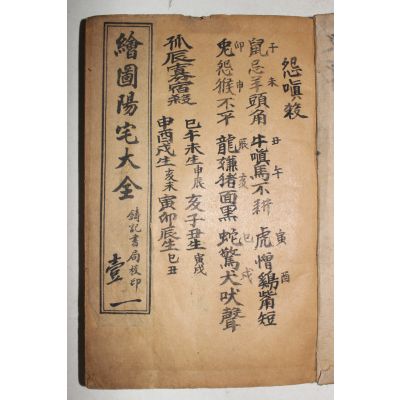 怨嗔殺
子未 鼠忌羊頭角
丑午 牛嗔馬不耕
寅酉 虎憎鷄觜短
卯申 兔怨猴不平
辰亥 龍嫌猪面黑
巳戌 蛇驚犬吠聲
孤辰寡宿殺
巳午未生 申辰
亥子丑生 寅戌
申酉戌生 亥未
寅卯辰生 巳丑
繪圖陽宅大全
鑄記書局校印
壹一